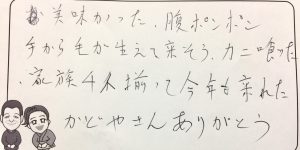 美味かった、腹ポンポン
手から毛が生えて来そう、カニ喰った
家族4人揃って今年も来れた
かどやさんありがとう